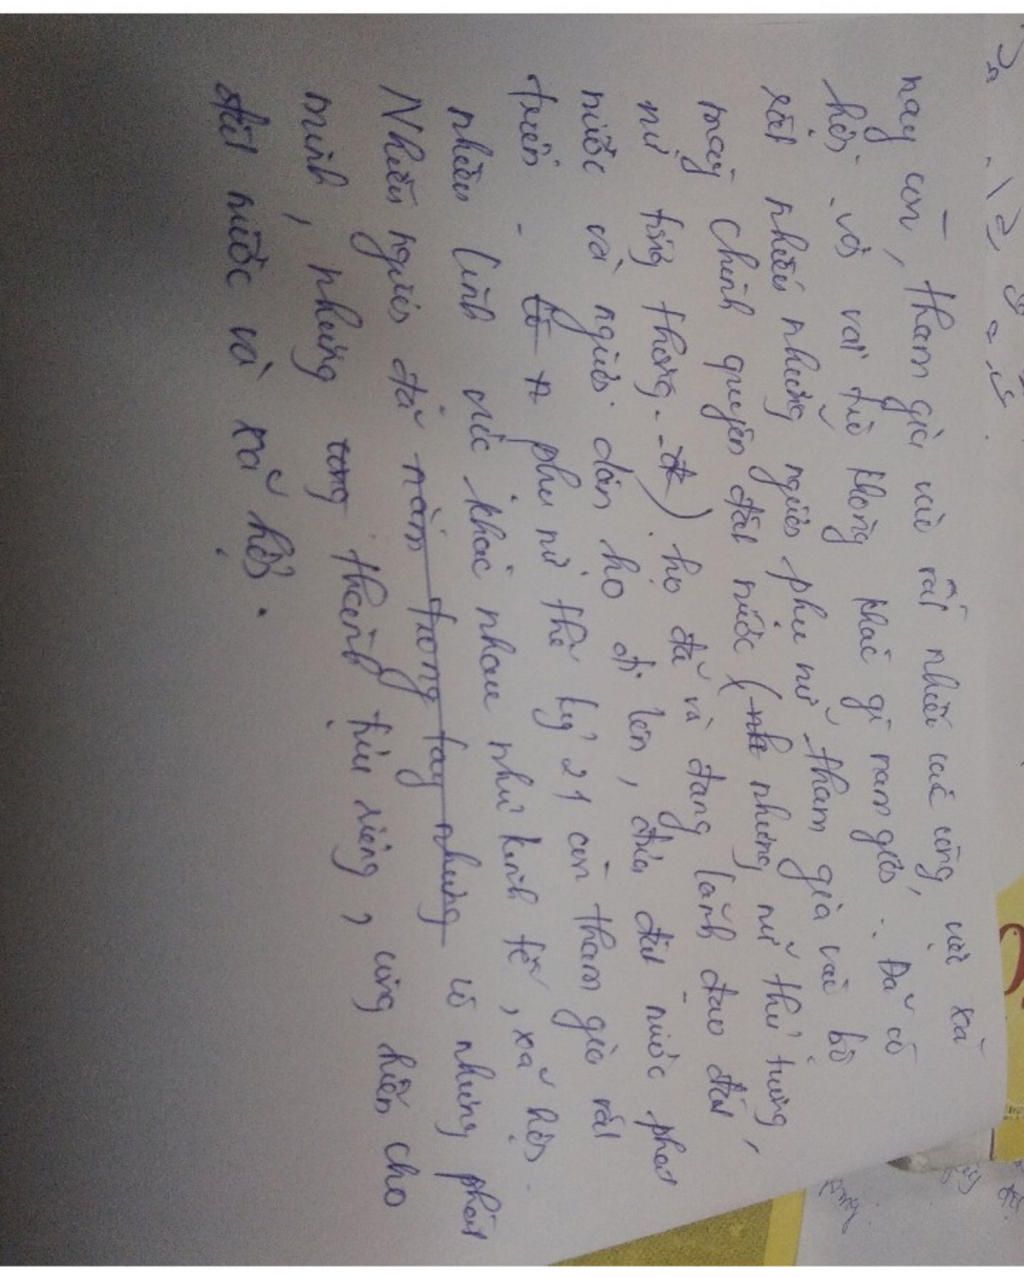 nay còn, tham gia vào rất nhiều các công, việc xã
hội. với vai trò không khác gì nam giới. Đã có
rất nhiều những người phụ nữ tham gia vào bộ
máy chính quyền đất nước (nh những nữ thủ tướng,
nữ tổng thống - đ) họ đã và đang lãnh đạo đất
nước và người dân họ đi lên, đưa đất nước phát
triển. phụ nữ thế kỷ 21 còn tham gia rất
nhiều lĩnh vực khác nhau như kinh tế, xã hội.
Nhiều người đã nằm trong tay những có những phát
minh, những công thành tựu riêng, cống hiến cho
đất nước và xã hội.